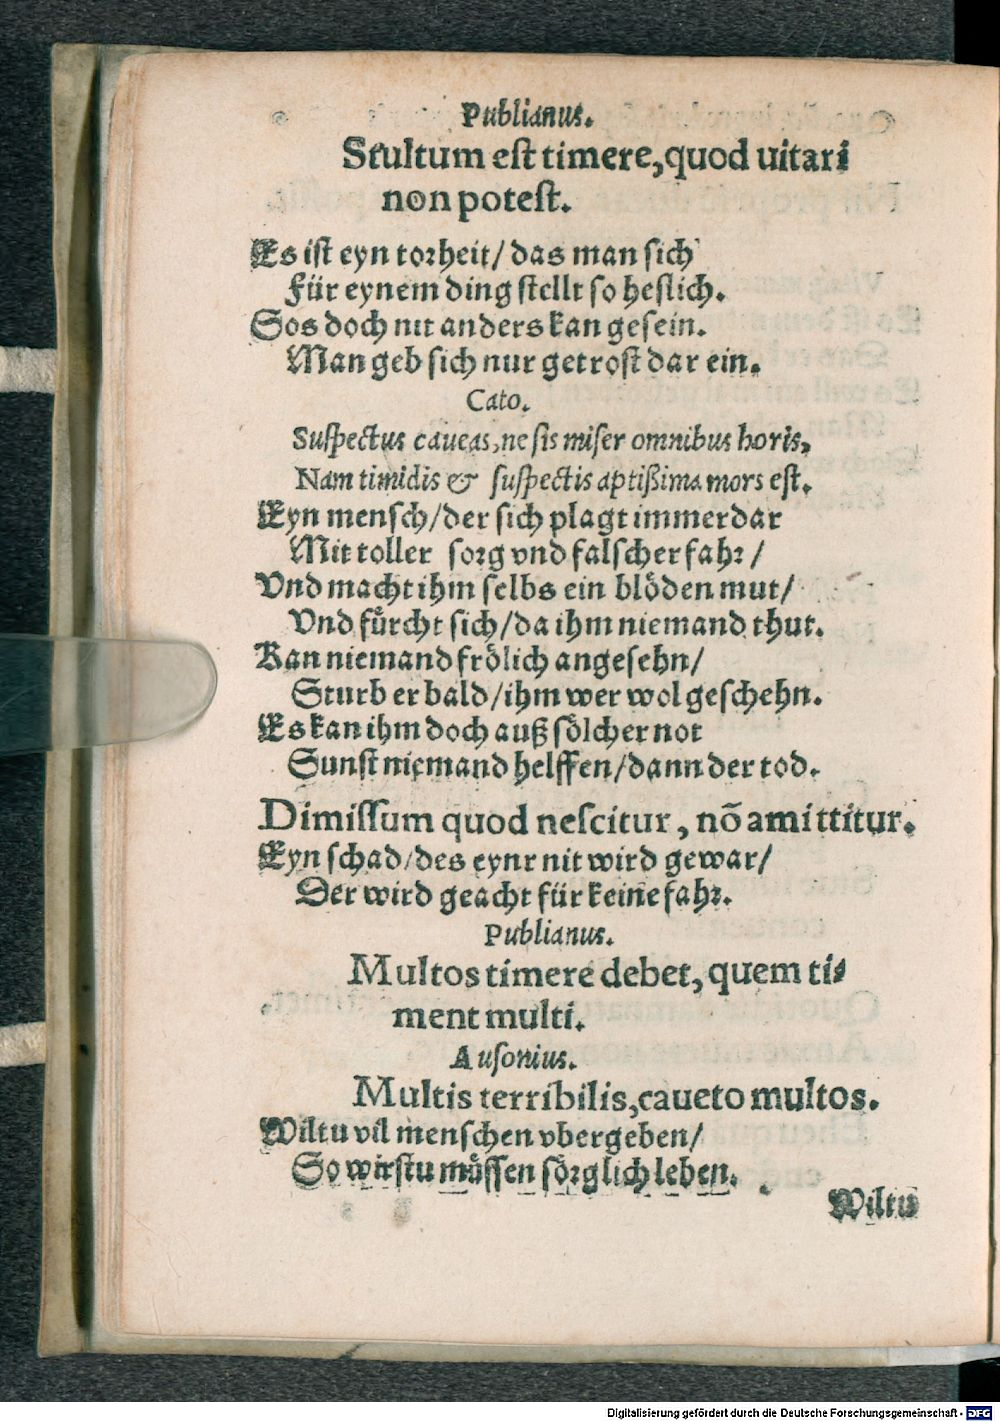 Publianus.
Stultum est timere, quod uitari
non potest.
Es ist eyn torheit/ das man sich
Für eynem ding stellt so heslich.
Sos doch nit anders kan gesein.
Man geb sich nur getrost dar ein.
Cato.
Suspectus caueas, ne sis miser omnibus horis,
Nam timidis & suspectis aptißima mors est.
Eyn mensch/ der sich plagt immerdar
Mit toller sorg vnd falscher fahr/
Vnd macht ihm selbs ein blöden mut/
Vnd fürcht sich/ da ihm niemand thut.
Kan niemand frölich angesehn/
Sturb er bald/ ihm wer wol geschehn.
Es kan ihm doch auß sölcher not
Sunst niemand helffen/ dann der tod.
Dimissum quod nescitur, nō amittitur.
Eyn schad/ des eynr nit wird gewar/
Der wird geacht für keine fahr.
Publianus.
Multos timere debet, quem ti-
ment multi.
Ausonius.
Multis terribilis, caueto multos.
Wiltu vil menschen vbergeben/
So wirstu müssen sörglich leben.
Wiltu
Digitalisierung gefördert durch die Deutsche Forschungsgemeinschaft - DFG